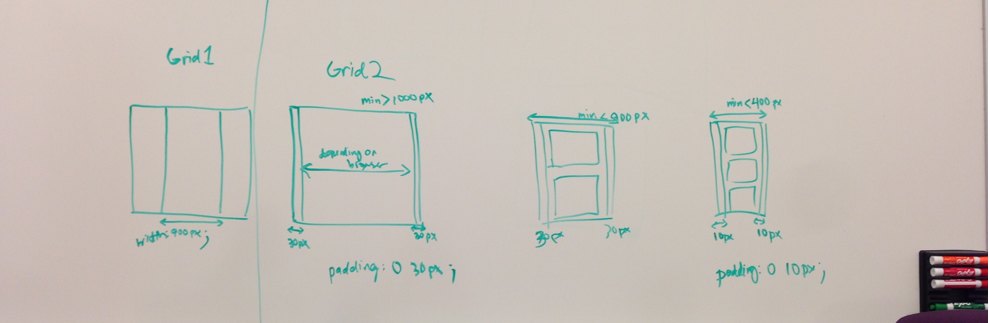 Grid1
width: 900px;
Grid2
min>1000px
depending on
browser
30px
30px
padding: 0 30px;
min<900px
30px
30px
min<400px
10px
10px
padding: 0 10px;